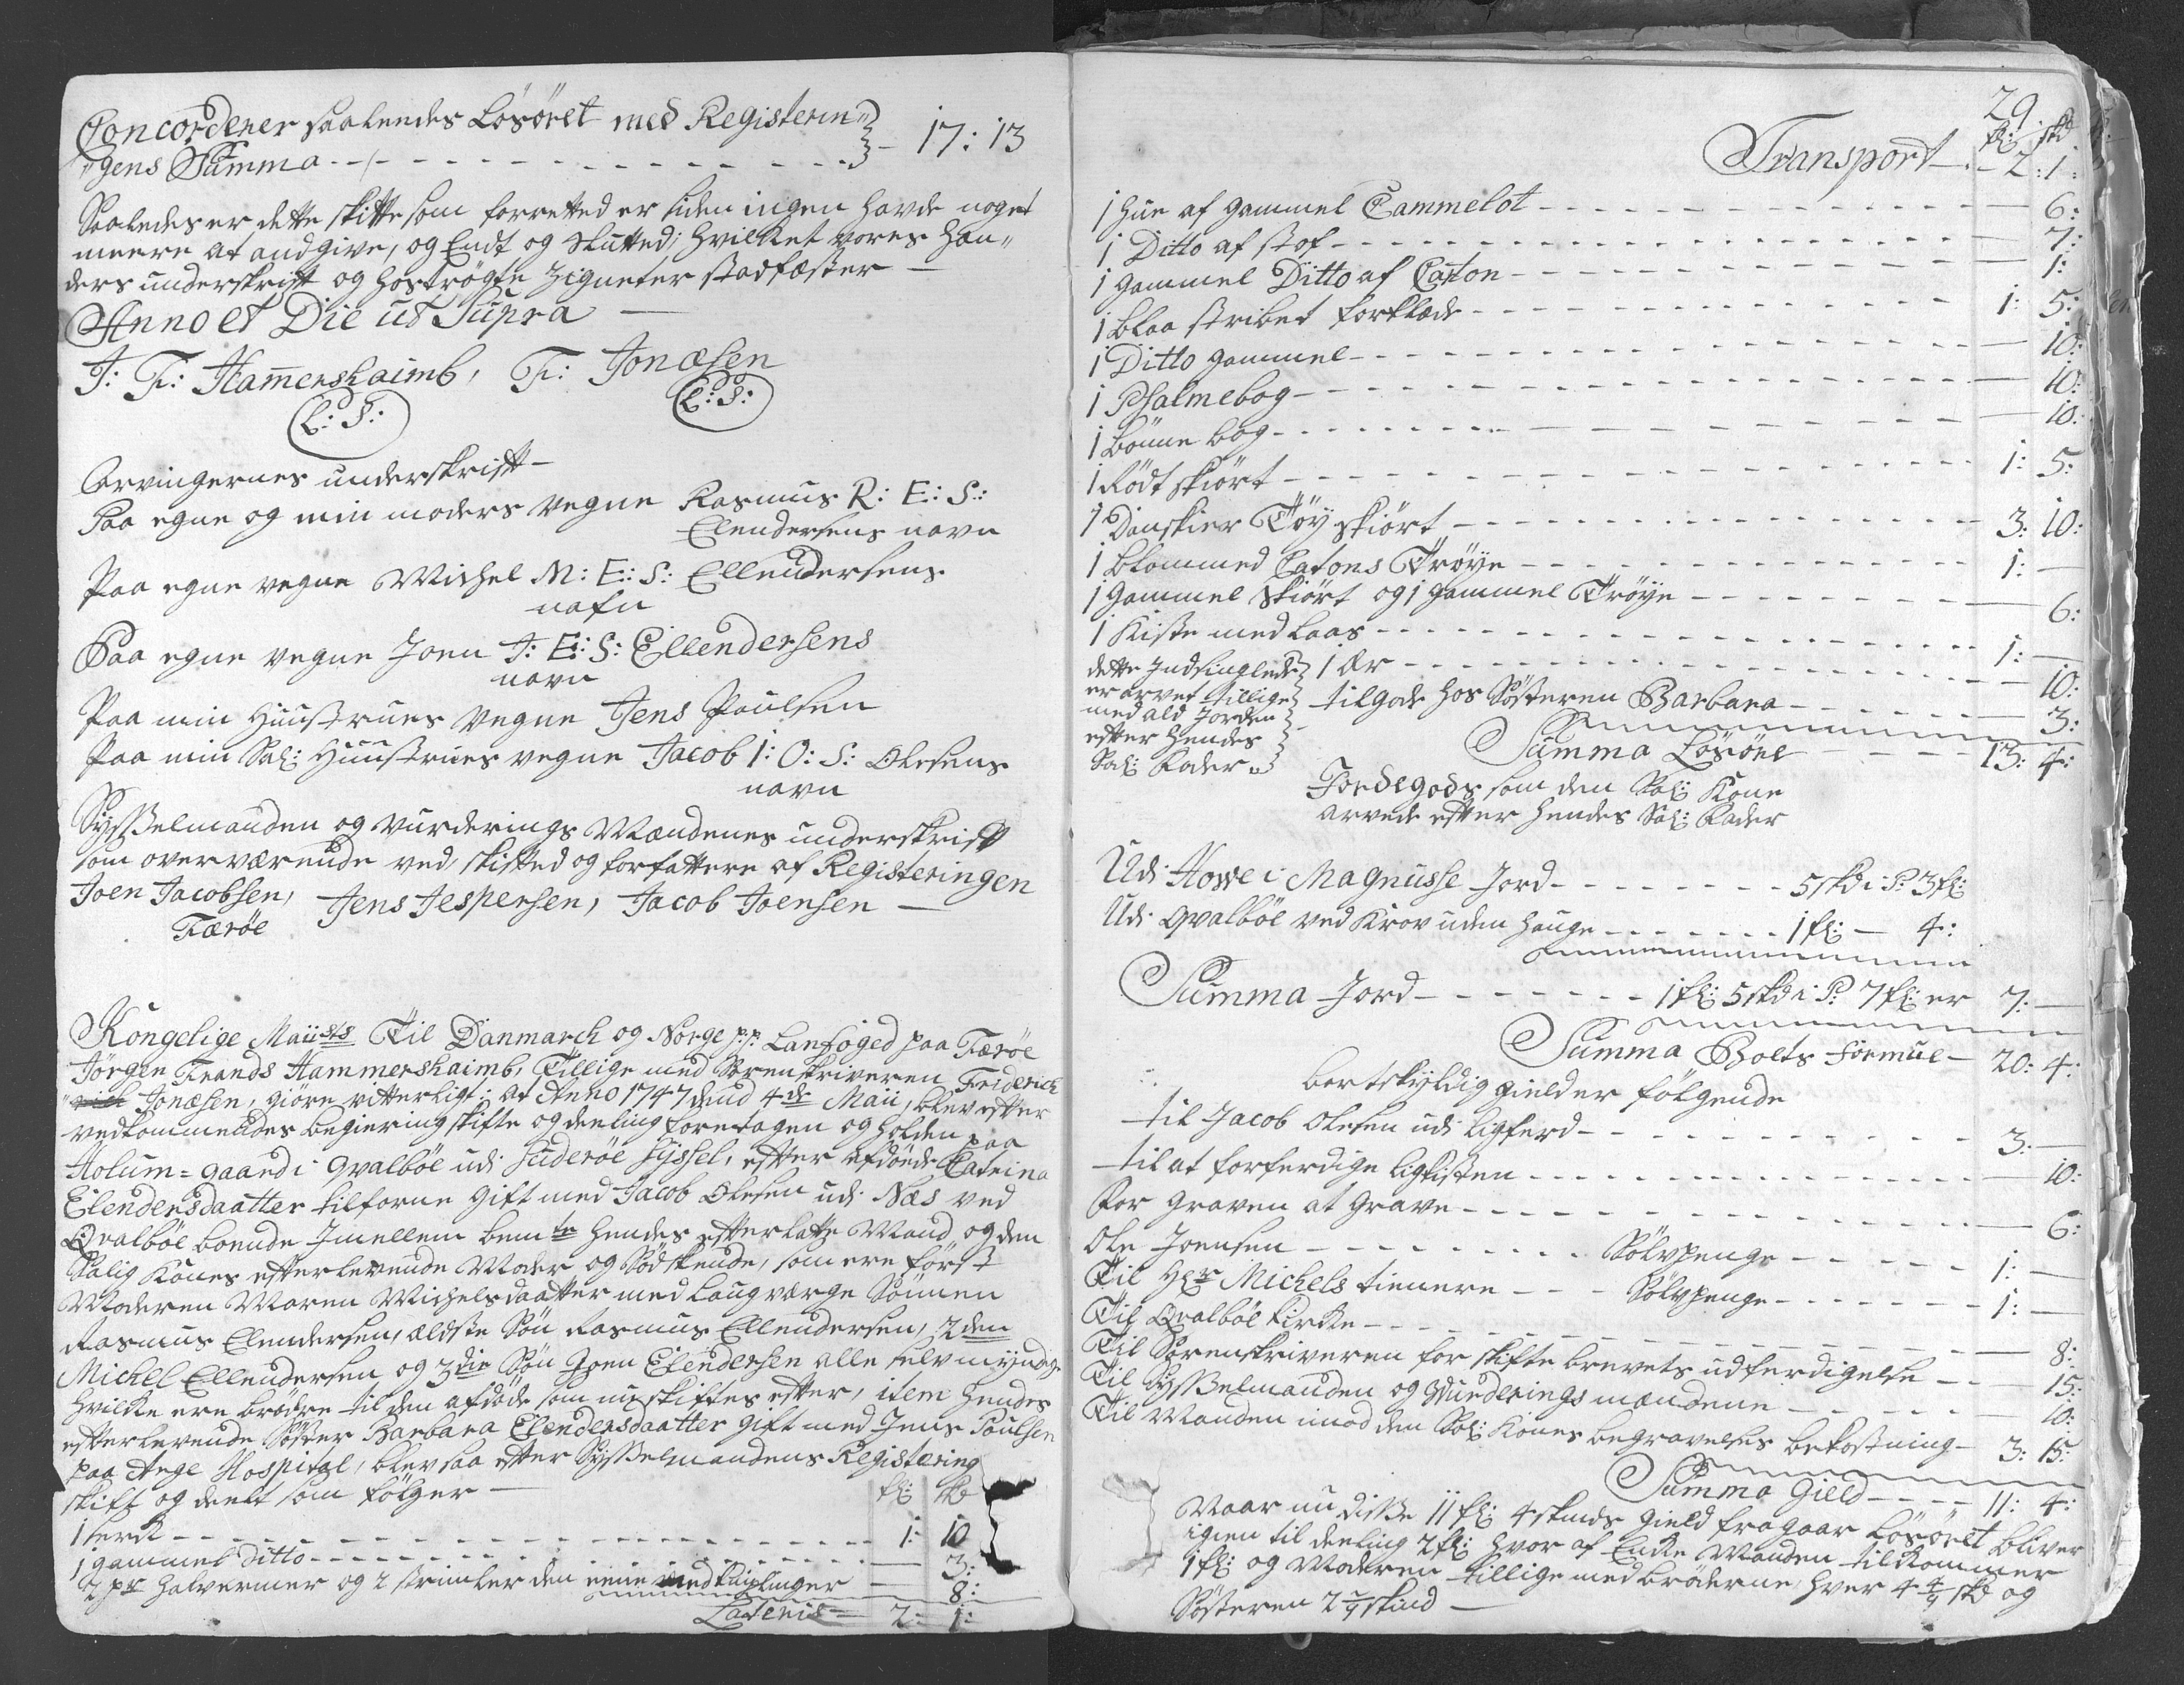 Concorderer saaleedes Løsöret med Registerin„
„gens Summa - - - - - 17: 13
Saaledes er dette skifte som forretted er siden ingen havde noget
meere at andgive, og Endt og slutted; hvilket vores Hæn„
ders underskrift og hoströgte Zigneter stadfæster —
Anno et Die ut Supra —
J: F: Ham̅ershaimb, F: Jonæsen
L: S: L: S:
Arvingernes underskrift —
Paa egne og min moders vegne Rasmus R: E: S:
Elendersens navn
Paa egne vegne Michel M: E: S: Ellendersens
nafn
Paa egne vegne Joen J: E: S: Ellendersens
navn
Paa min Huustrues vegne Jens Poulsen
Paa min Sal: Huustrues vegne Jacob I: O: S: Olesens
navn
Sysselmanden og vurderings Mændenes underskrift
som overværende ved skifted og forfattere af Registeringen
Joen Jacobsen, Jens Jespersen, Jacob Joensen —
Færöe
Kongelige Maiists Til Danmarck og Norge p:p: Lanfoged paa Færöe
Jörgen Frands Hammershaimb, Tillige med Sorenskriveren Friderich
Jonæsen, giöre vitterligt; at Anno 1747 dend 4de Maii, blev efter
vedkommendes begiering skifte og deeling foretagen og holden paa
Holum=gaard i Qvalböe udi Suderöe Syssel, efter afdöde Catrina
Elendersdaatter tilforne gift med Jacob Olesen udi Næs ved
Qvalböe boende Imellem bemte hendes efterlatte Mand, og den
Salig Kones efterlevende Moder og Södskende, som ere först
Moderen Maren Michelsdaatter med laugværge Sönnen
Rasmus Elendersen, ældste Sön Rasmus Ellendersen, 2den
Michel Ellendersen og 3die Sön Joen Elendersen alle selv myndige
hvilke ere brödre til den afdöde som nu skiftes efter, item hendes
efterlevende Söster Barbara Elendersdaatter gift med Jens Poulsen
paa Arge Hospital, blev saa efter Sysselmandens Registering
skift og deelt som fölger —
fl: skd
1 serk - - - - - 1: 10
1 gammel ditto - - - - - — 3:
2 pr halvermer og 2 strimler den eene med kniplinger — 8:
Lateris — 2: 1:
29.
fl: skd
Transport — - 2: 1:
1 hue af gammel Cammelot - - - - - — 6:
1 Ditto af stof - - - - - — 7:
1 gammel Ditto af Caton - - - - - — 1:
1 blaa stribet forklæde - - - - - 1: 5:
1 Ditto gammel - - - - - — 10:
1 Psalmebog - - - - - — 10:
1 bönne bog - - - - - — 10:
1 Rödt skiört - - - - - 1: 5:
1 Danskier Töy skiört - - - - - 3: 10:
1 blommed Catons Tröye - - - - - 1: —
1 gammel skiört og 1 gammel Tröye - - - - - — 6:
1 Kiste med laas - - - - - 1: —
dette Indsinglede 1 Ær - - - - - — 10:
er arvet tillige tilgode hos Sösteren Barbara - - - - - 3:
med ald Jorden
efter hendes Summa Lösöre — 13: 4:
Sal: Fader
Jordegods som den Sal: Kone
arvede efter hendes Sal: Fader
Udi Howe i Magnusse Jord - - - - - 5 skd i P. 3 fl:
Udi Qvalböe ved Kirov uden hauge - - - - - 1 fl: — 4:
Summa Jord - - - - - 1 fl: 5 skd i P. 7 fl: er 7: —
Summa Boets formue — 20: 4:
bortskyldig gield er fölgende
til Jacob Olesen udi ligferd - - - - - 3: —
til at forferdige ligkisten - - - - - — 10:
for graven at grave - - - - - — 6:
Ole Joensen - - - - - Sölvpenge - - - - - 1: —
Til Hr Michels tienere - - - Sölvpenge - - - - - 1: —
Til Qvalböe kirke - - - - - — 8:
Til Sorenskriveren for skifte brevets udferdigelse - - 15:
Til Sysselmanden og Vurderings mændene - - - - - — 10:
Til Manden imod den Sal: Kones begravelses bekostning — 3: 15:
Summa Gield - - - - 11: 4:
Naar nu disse 11 fl: 4 skinds gield fragaar Lösöret bliver
igien til deeling 2 fl: hvor af Enke Manden tilkommer
1 fl: og Moderen tillige med bröderne, hver 4 4/9 skd og
Sösteren 2 2/9 skind —